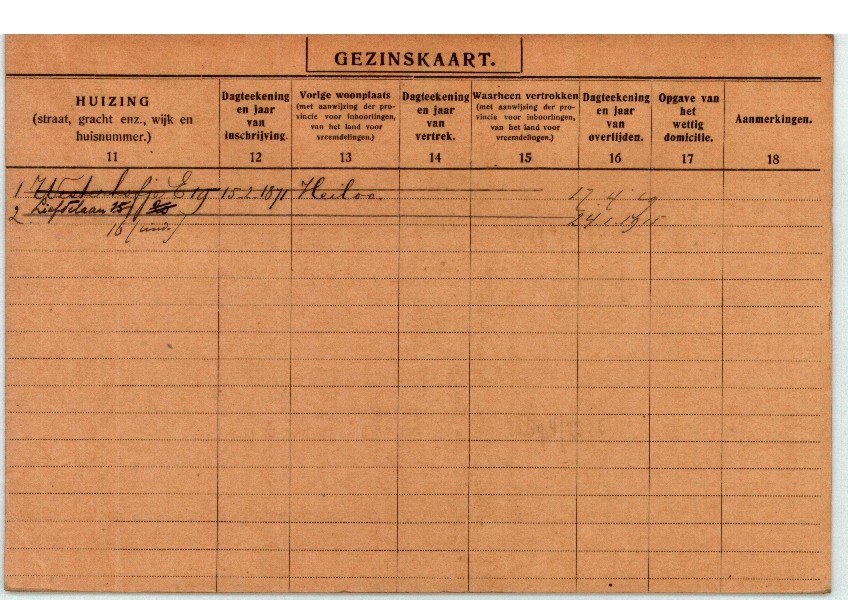 GEZINSKAART.
HUIZING
(straat, gracht enz., wijk en
huisnummer.)
11
Dagteekening
en jaar
van
inschrijving.
12
Vorige woonplaats
(met aanwijzing der pro-
vincie voor inboorlingen,
van het land voor
vreemdelingen.)
13
Dagteekening
en jaar
van
vertrek.
14
Waarheen vertrokken
(met aanwijzing der pro-
vincie voor inboorlingen,
van het land voor
vreemdelingen.)
15
Dagteekening
en jaar
van
overlijden.
16
Opgave van
het
wettig
domicilie.
17
Aanmerkingen.
18
1 Westerhofje E 19 15-2-1871 Heiloo. 17.4.
2 Liefdelaan 25 24.1.1915
16